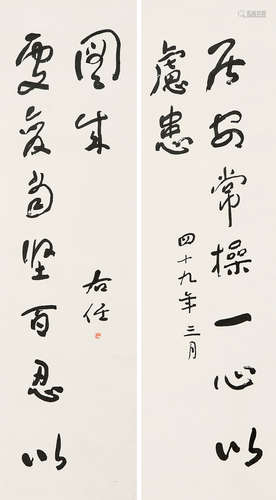 居安常操一心以
慮患
四十九年三月
處變當堅百忍以
圖成
右任